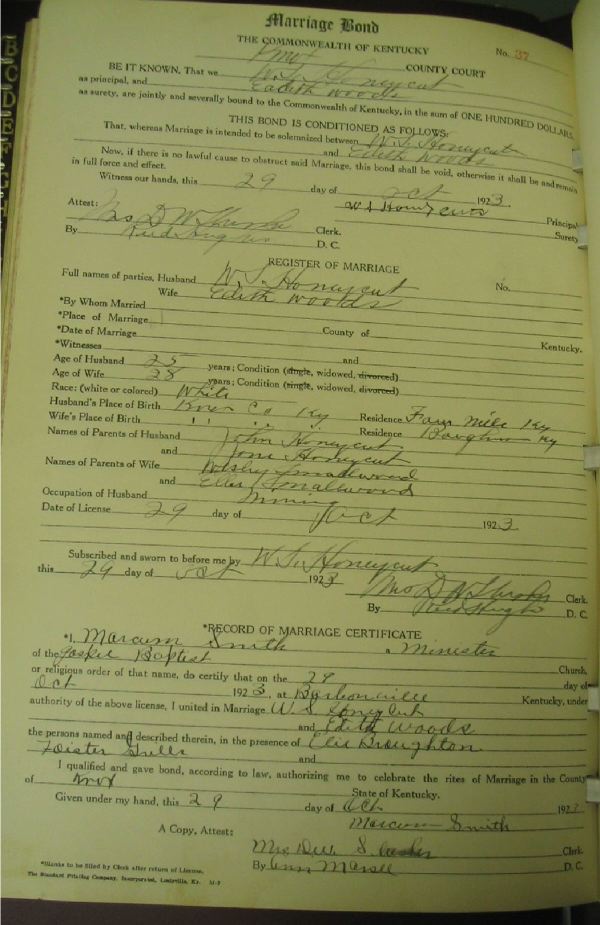 Marriage Bond
THE COMMONWEALTH OF KENTUCKY
No. 37
Knox COUNTY COURT
BE IT KNOWN, That we W. S. Honeycut
as principal, and Edith Woods
as surety, are jointly and severally bound to the Commonwealth of Kentucky, in the sum of ONE HUNDRED DOLLARS.
THIS BOND IS CONDITIONED AS FOLLOWS:
That, whereas Marriage is intended to be solemnized between W. S. Honeycut
and Edith Woods
Now, if there is no lawful cause to obstruct said Marriage, this bond shall be void, otherwise it shall be and remain
in full force and effect.
Witness our hands, this 29 day of Oct 1923.
W S Honeycutt Principal
Attest: Surety
Mrs D W Clerk.
By D. C.
REGISTER OF MARRIAGE
Full names of parties, Husband W. S. Honeycut No.
Wife Edith Woods
*By Whom Married
*Place of Marriage County of Kentucky.
*Date of Marriage
*Witnesses and
Age of Husband 25 years; Condition (single, widowed, divorced)
Age of Wife 28 years; Condition (single, widowed, divorced)
Race: (white or colored) White
Husband's Place of Birth Knox Co Ky Residence Four Mile Ky
Wife's Place of Birth " " " Residence Ky
Names of Parents of Husband John Honeycut
and Honeycut
Names of Parents of Wife Smallwood
and Smallwood
Occupation of Husband Mining
Date of License 29 day of Oct 1923
Subscribed and sworn to before me by W. S. Honeycut
this 29 day of Oct 1923
Mrs D W Clerk.
By D. C.
*RECORD OF MARRIAGE CERTIFICATE
*I, Marcum Smith a Minister
of the Baptist Church,
or religious order of that name, do certify that on the 29 day of
Oct 1923, at Barbourville Kentucky, under
authority of the above license, I united in Marriage W. S.
and Edith Woods
the persons named and described therein, in the presence of Broughton
and
I qualified and gave bond, according to law, authorizing me to celebrate the rites of Marriage in the County
of Knox State of Kentucky.
Given under my hand, this 29 day of Oct 1923
Marcum Smith
A Copy, Attest:
Mrs Clerk.
By D. C.
*Blanks to be filled by Clerk after return of License.
The Standard Printing Company, Incorporated, Louisville, Ky.
B
C
D
E
F
G
H